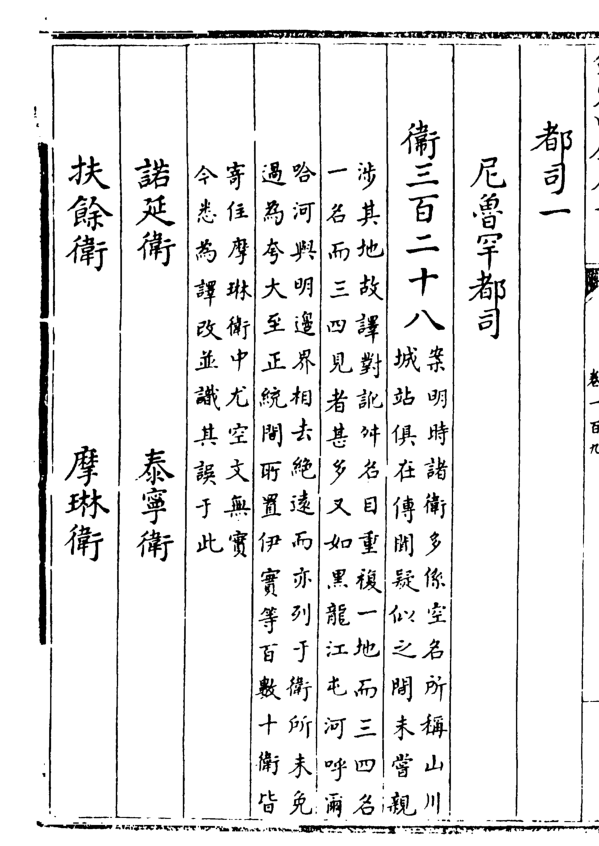 卷一百九
都司一
尼魯罕都司
衛三百二十八
案明時諸衛多係空名所稱山川
城站俱在傳聞疑似之間未嘗親
涉其地故譯對訛舛名目重複一地而三四名
一名而三四見者甚多又如黑龍江屯河呼爾
哈河與明邊界相去絶遠而亦列于衛所未免
過為夸大至正統間所置伊實等百數十衛皆
寄住摩琳衛中尤空文無實
今悉為譯改並識其誤于此
諾延衛 泰寧衛
扶餘衛 摩琳衛